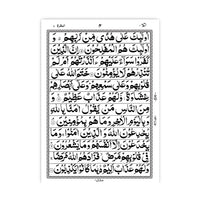 اُولٰٓئِكَ عَلٰى هُدًى مِّنْ رَّبِّهِمْ وَ
اُولٰٓئِكَ هُمُ الْمُفْلِحُوْنَ اِنَّ الَّذِيْنَ
كَفَرُوْا سَوَآءٌ عَلَيْهِمْ ءَاَنْذَرْتَهُمْ اَمْ
لَمْ تُنْذِرْهُمْ لَا يُؤْمِنُوْنَ خَتَمَ اللّٰهُ عَلٰى
قُلُوْبِهِمْ وَعَلٰى سَمْعِهِمْ وَعَلٰٓى اَبْصَارِهِمْ
غِشَاوَةٌ وَّلَهُمْ عَذَابٌ عَظِيْمٌ وَ
مِنَ النَّاسِ مَنْ يَّقُوْلُ اٰمَنَّا بِاللّٰهِ
وَبِالْيَوْمِ الْاٰخِرِ وَمَا هُمْ بِمُؤْمِنِيْنَ
يُخٰدِعُوْنَ اللّٰهَ وَالَّذِيْنَ اٰمَنُوْا وَمَا
يَخْدَعُوْنَ اِلَّآ اَنْفُسَهُمْ وَمَا يَشْعُرُوْنَ
فِيْ قُلُوْبِهِمْ مَّرَضٌ فَزَادَهُمُ اللّٰهُ مَرَضًا
وَلَهُمْ عَذَابٌ اَلِيْمٌ بِمَا كَانُوْا يَكْذِبُوْنَ